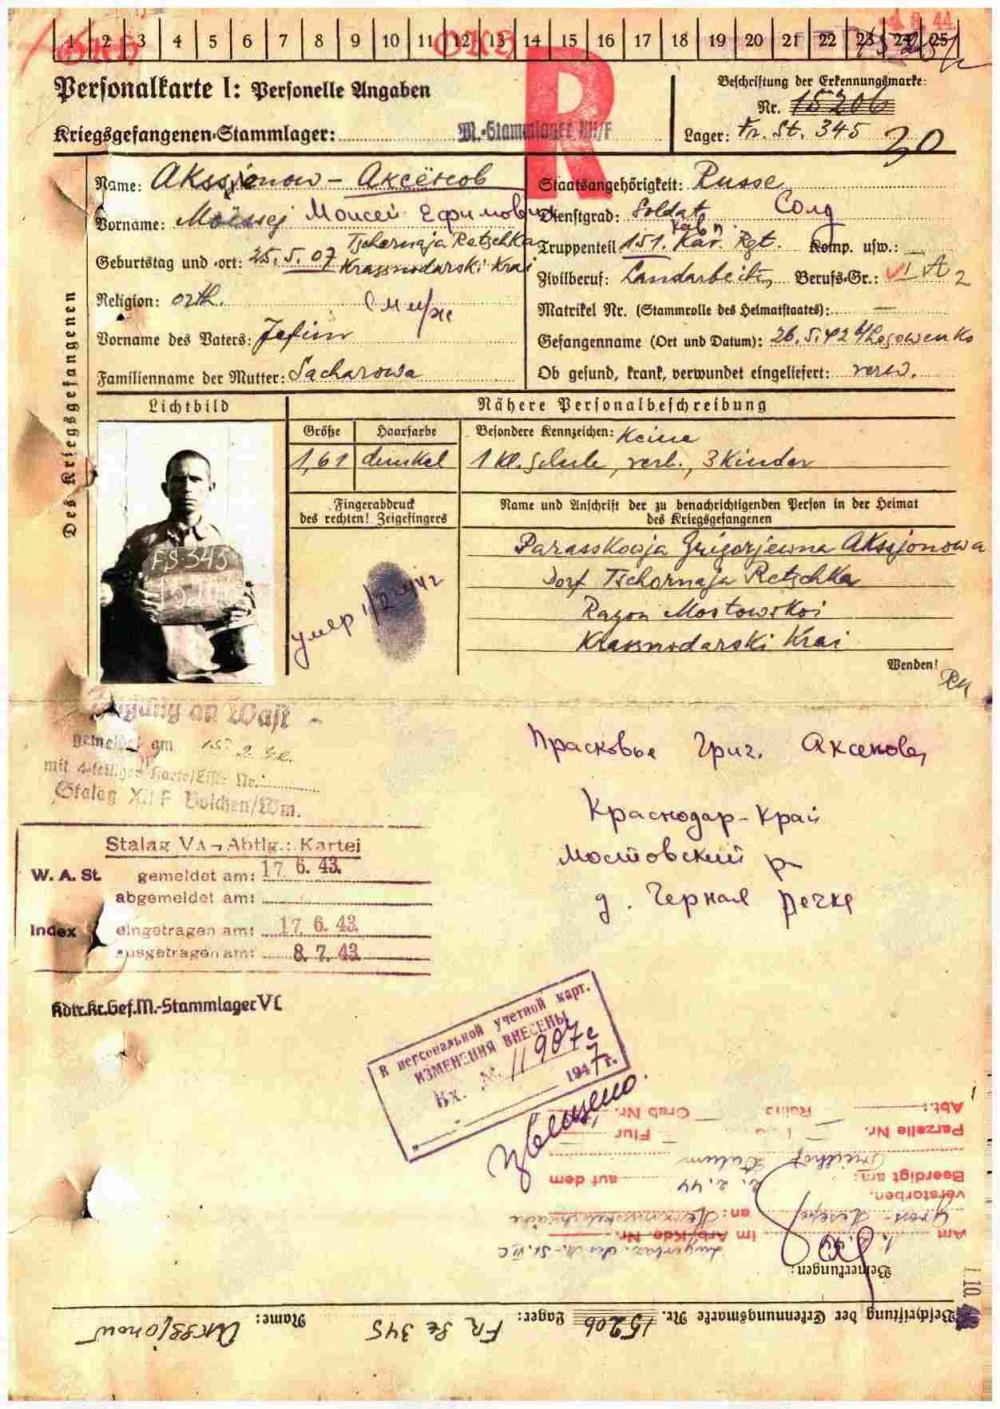 1 2 3 4 5 6 7 8 9 10 11 12 13 14 15 16 17 18 19 20 21 22 23 24 25
OKH OKH
R
Personalkarte I: Personelle Angaben
Beschriftung der Erkennungsmarke:
Nr. 15206
Kriegsgefangenen-Stammlager: M.-Stammlager XII/F
Lager: Fr. St. 345
30
Des Kriegsgefangenen
Name: Akssjonow – Аксёнов
Vorname: Moissej Моисей Ефимович
Geburtstag und -ort: 25.5.07 Tschernaja Retschka
Krassnodarski Krai
Religion: orth.
Vorname des Vaters: Jefim
Familienname der Mutter: Sacharowa
Staatsangehörigkeit: Russe
Dienstgrad: Soldat Солд
Truppenteil 151. Kav. Rgt. Komp. usw.:
Zivilberuf: Landarbeiter Berufs-Gr.: VI A 2
Matrikel Nr. (Stammrolle des Heimatstaates): —
Gefangennahme (Ort und Datum): 26.5.42 Losowenko
Ob gesund, krank, verwundet eingeliefert: verw.
Lichtbild
Nähere Personalbeschreibung
Größe Haarfarbe Besondere Kennzeichen: Keine
1,61 dunkel 1 Kl. Schule, verh., 3 Kinder
Fingerabdruck
des rechten! Zeigefingers
Name und Anschrift der zu benachrichtigenden Person in der Heimat
des Kriegsgefangenen
F.S 345
15206
умер 1/2
Parasskowja Grigorjewna Akssjonowa
Dorf Tschornaja Retschka
Rayon Mostowskoi
Krassnodarski Krai
Wenden!
Zugang an WASt
gemeldet am
mit 4-teiliger Karte/Liste Nr.:
Stalag XII F Bolchen/Wm.
Прасковье Григ. Аксенова
Краснодар-Край
Мостовский р
д. Черная Речка
Stalag VA – Abtlg.: Kartei
W. A. St. gemeldet am: 17. 6. 43.
abgemeldet am:
Index eingetragen am: 17. 6. 43.
ausgetragen am: 8. 7. 43.
Kdtr.Kr.Gef.M.-Stammlager V C
В персональной учетной карт.
ИЗМЕНЕНИЯ ВНЕСЕНЫ
Вх. № 11907с
1947 г.
Извещено
Bemerkungen:
Am 1.2.44 im Arb.Kdo. Nr.
Gross-Lesepf an:
verstorben.
Beerdigt am: 2.2.44 auf dem
Parzelle Nr. Flur
Abt.: Reihe Grab Nr.
Beschriftung der Erkennungsmarke Nr. 15206 Lager: FR St 345 Name: Akssjonow